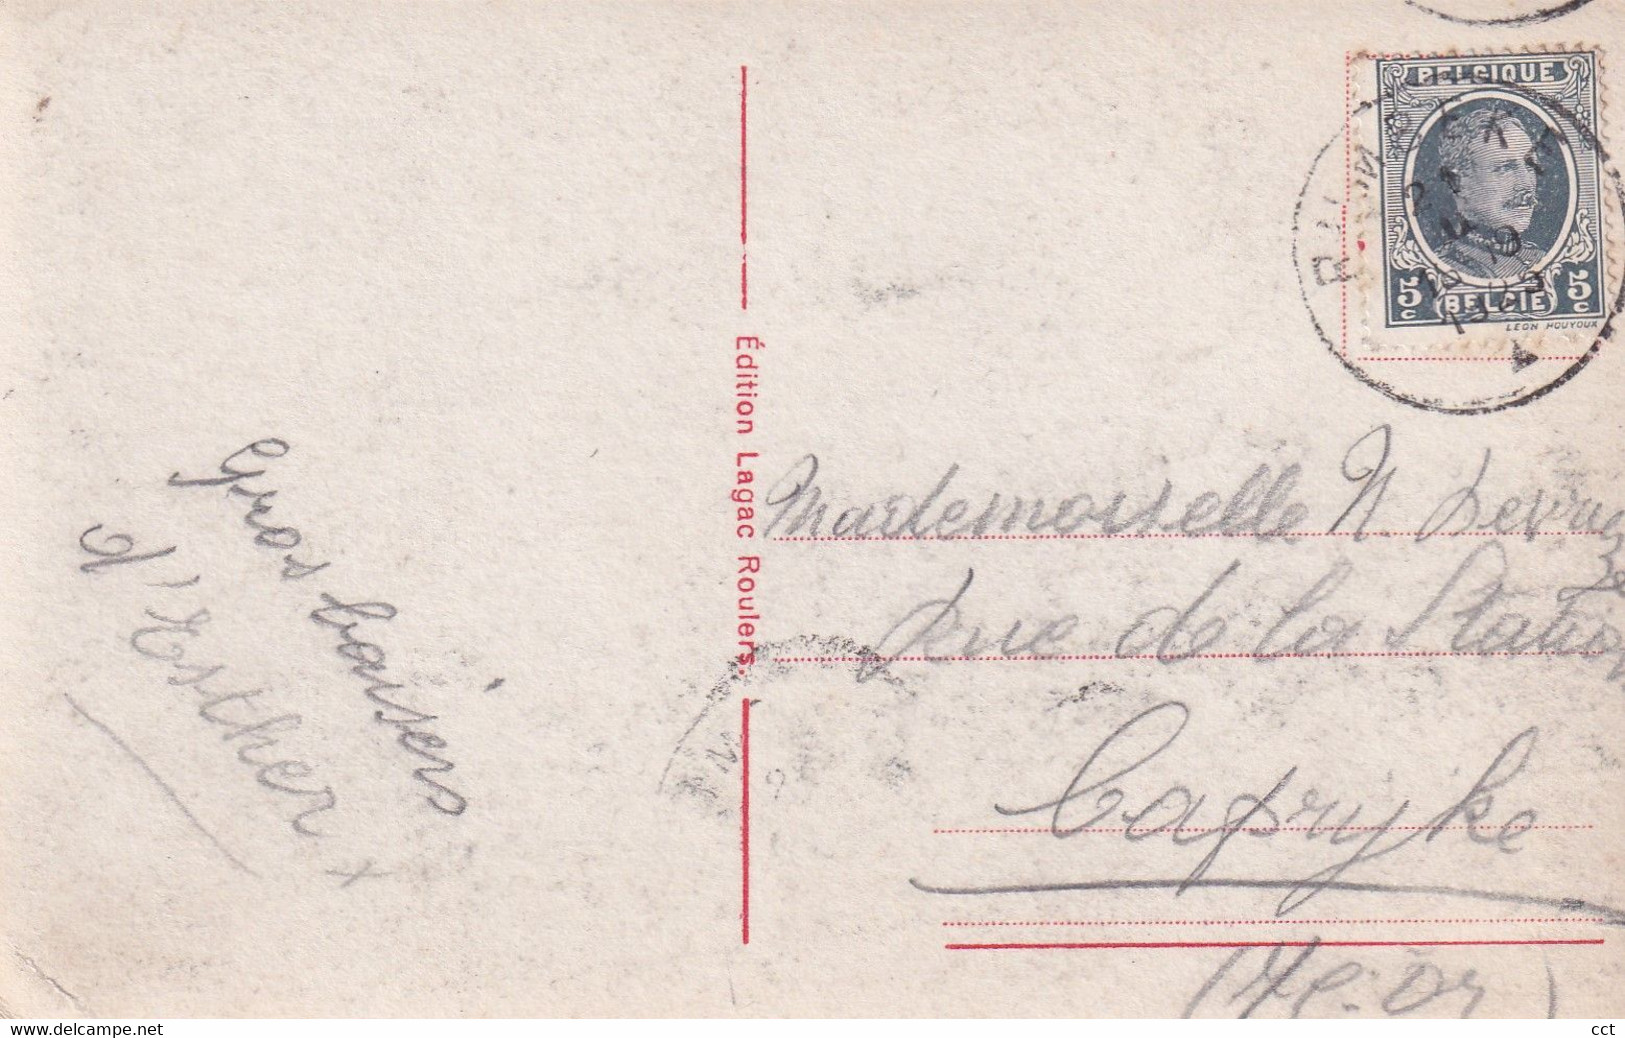 Gros baisers
d'Esther
Édition Lagac Roulers.
BELGIQUE
5c BELGIE 5c
LEON HOUYOUX
Mademoiselle N.
rue de la Station
Capryke
www.delcampe.net
cct